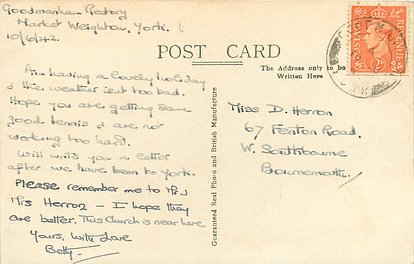 Goodmanham Rectory
Market Weighton, York.
10/6/42.
POST CARD
The Address only to be
Written Here
POSTAGE
REVENUE
Am having a lovely holiday
& the weather isn't too bad.
Hope you are getting some
good tennis & are not
working too hard.
Will write you a letter
after we have been to York.
Please remember me to Mr &
Mrs Herron - I hope they
are better. This Church is near here
Yours, with Love
Betty.
Guaranteed Real Photo and British Manufacture
Miss D. Herron
67 Fenton Road.
W. Southbourne
Bournemouth.